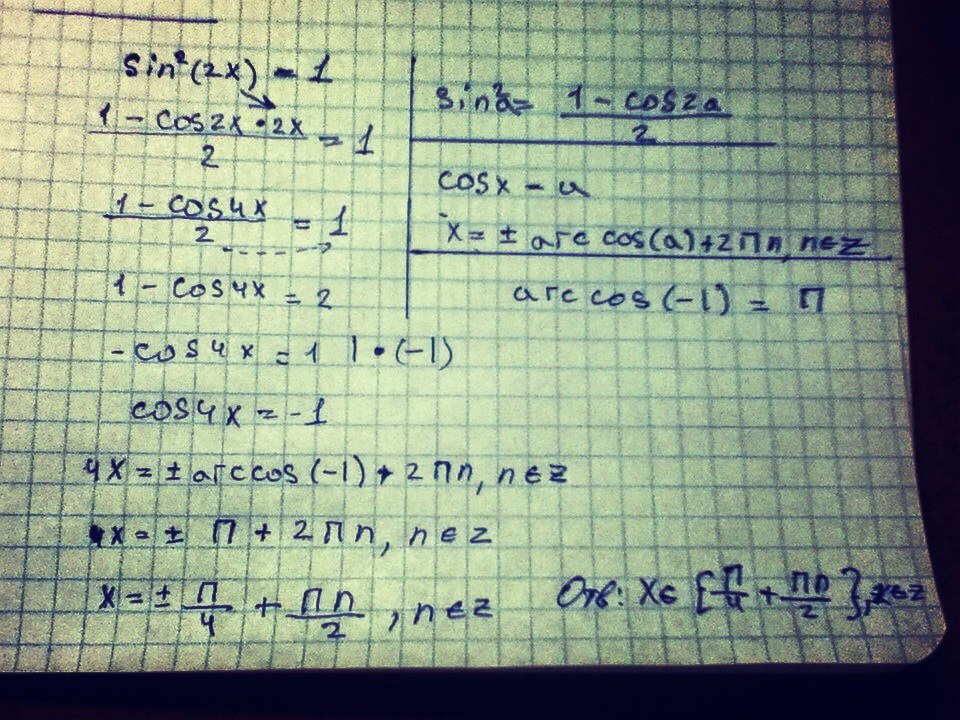 sin²(2x) = 1
(1 - cos2x·2x)/2 = 1
(1 - cos4x)/2 = 1
1 - cos4x = 2
-cos4x = 1 | • (-1)
cos4x = -1
4x = ± arccos(-1) + 2Пn, n∈Z
4x = ± П + 2Пn, n∈Z
x = ± П/4 + Пn/2, n∈Z
sin²a = (1 - cos2a)/2
cosx = a
x = ± arccos(a) + 2Пn, n∈Z
arccos(-1) = П
Отв: x∈ {П/4 + Пn/2}, ∈Z